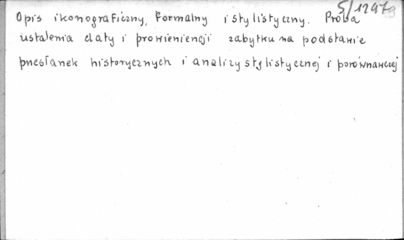 5/1247
Opis ikonograficzny, formalny i stylistyczny. Próba
ustalenia daty i prowieniencji zabytku na podstawie
przesłanek historycznych i analizy stylistycznej i porównawczej